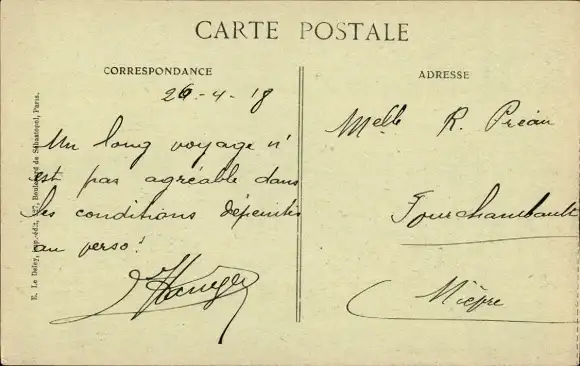 CARTE POSTALE
CORRESPONDANCE
26-4-18
Un long voyage n'
est pas agréable dans
les conditions dépeintes
au verso!
ADRESSE
Melle R. Préau
Fourchambault
Nièvre
E. Le Deley, Imp.-édit, 127, Boulevard de Sébastopol, Paris.